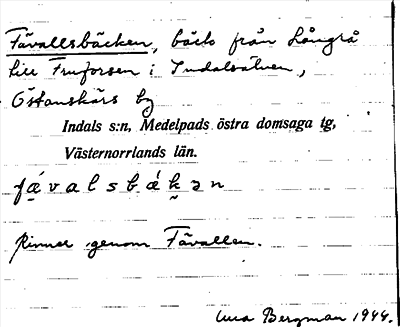 Fävallsbäcken, bäck från Långrå
till Fruforsen i Indalsälven,
Östanskärs by
Indals s:n, Medelpads östra domsaga tg,
Västernorrlands län.
fä́valsbä́k̯ən
Rinner genom Fävallen.
Bergman 1944.